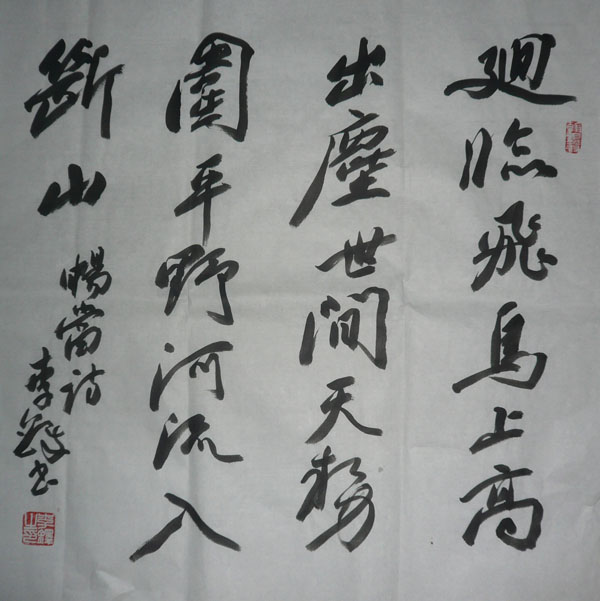 廻臨飛鳥上高
出塵世間天勢
圍平野河流入
斷山
暢當詩
李鐸书